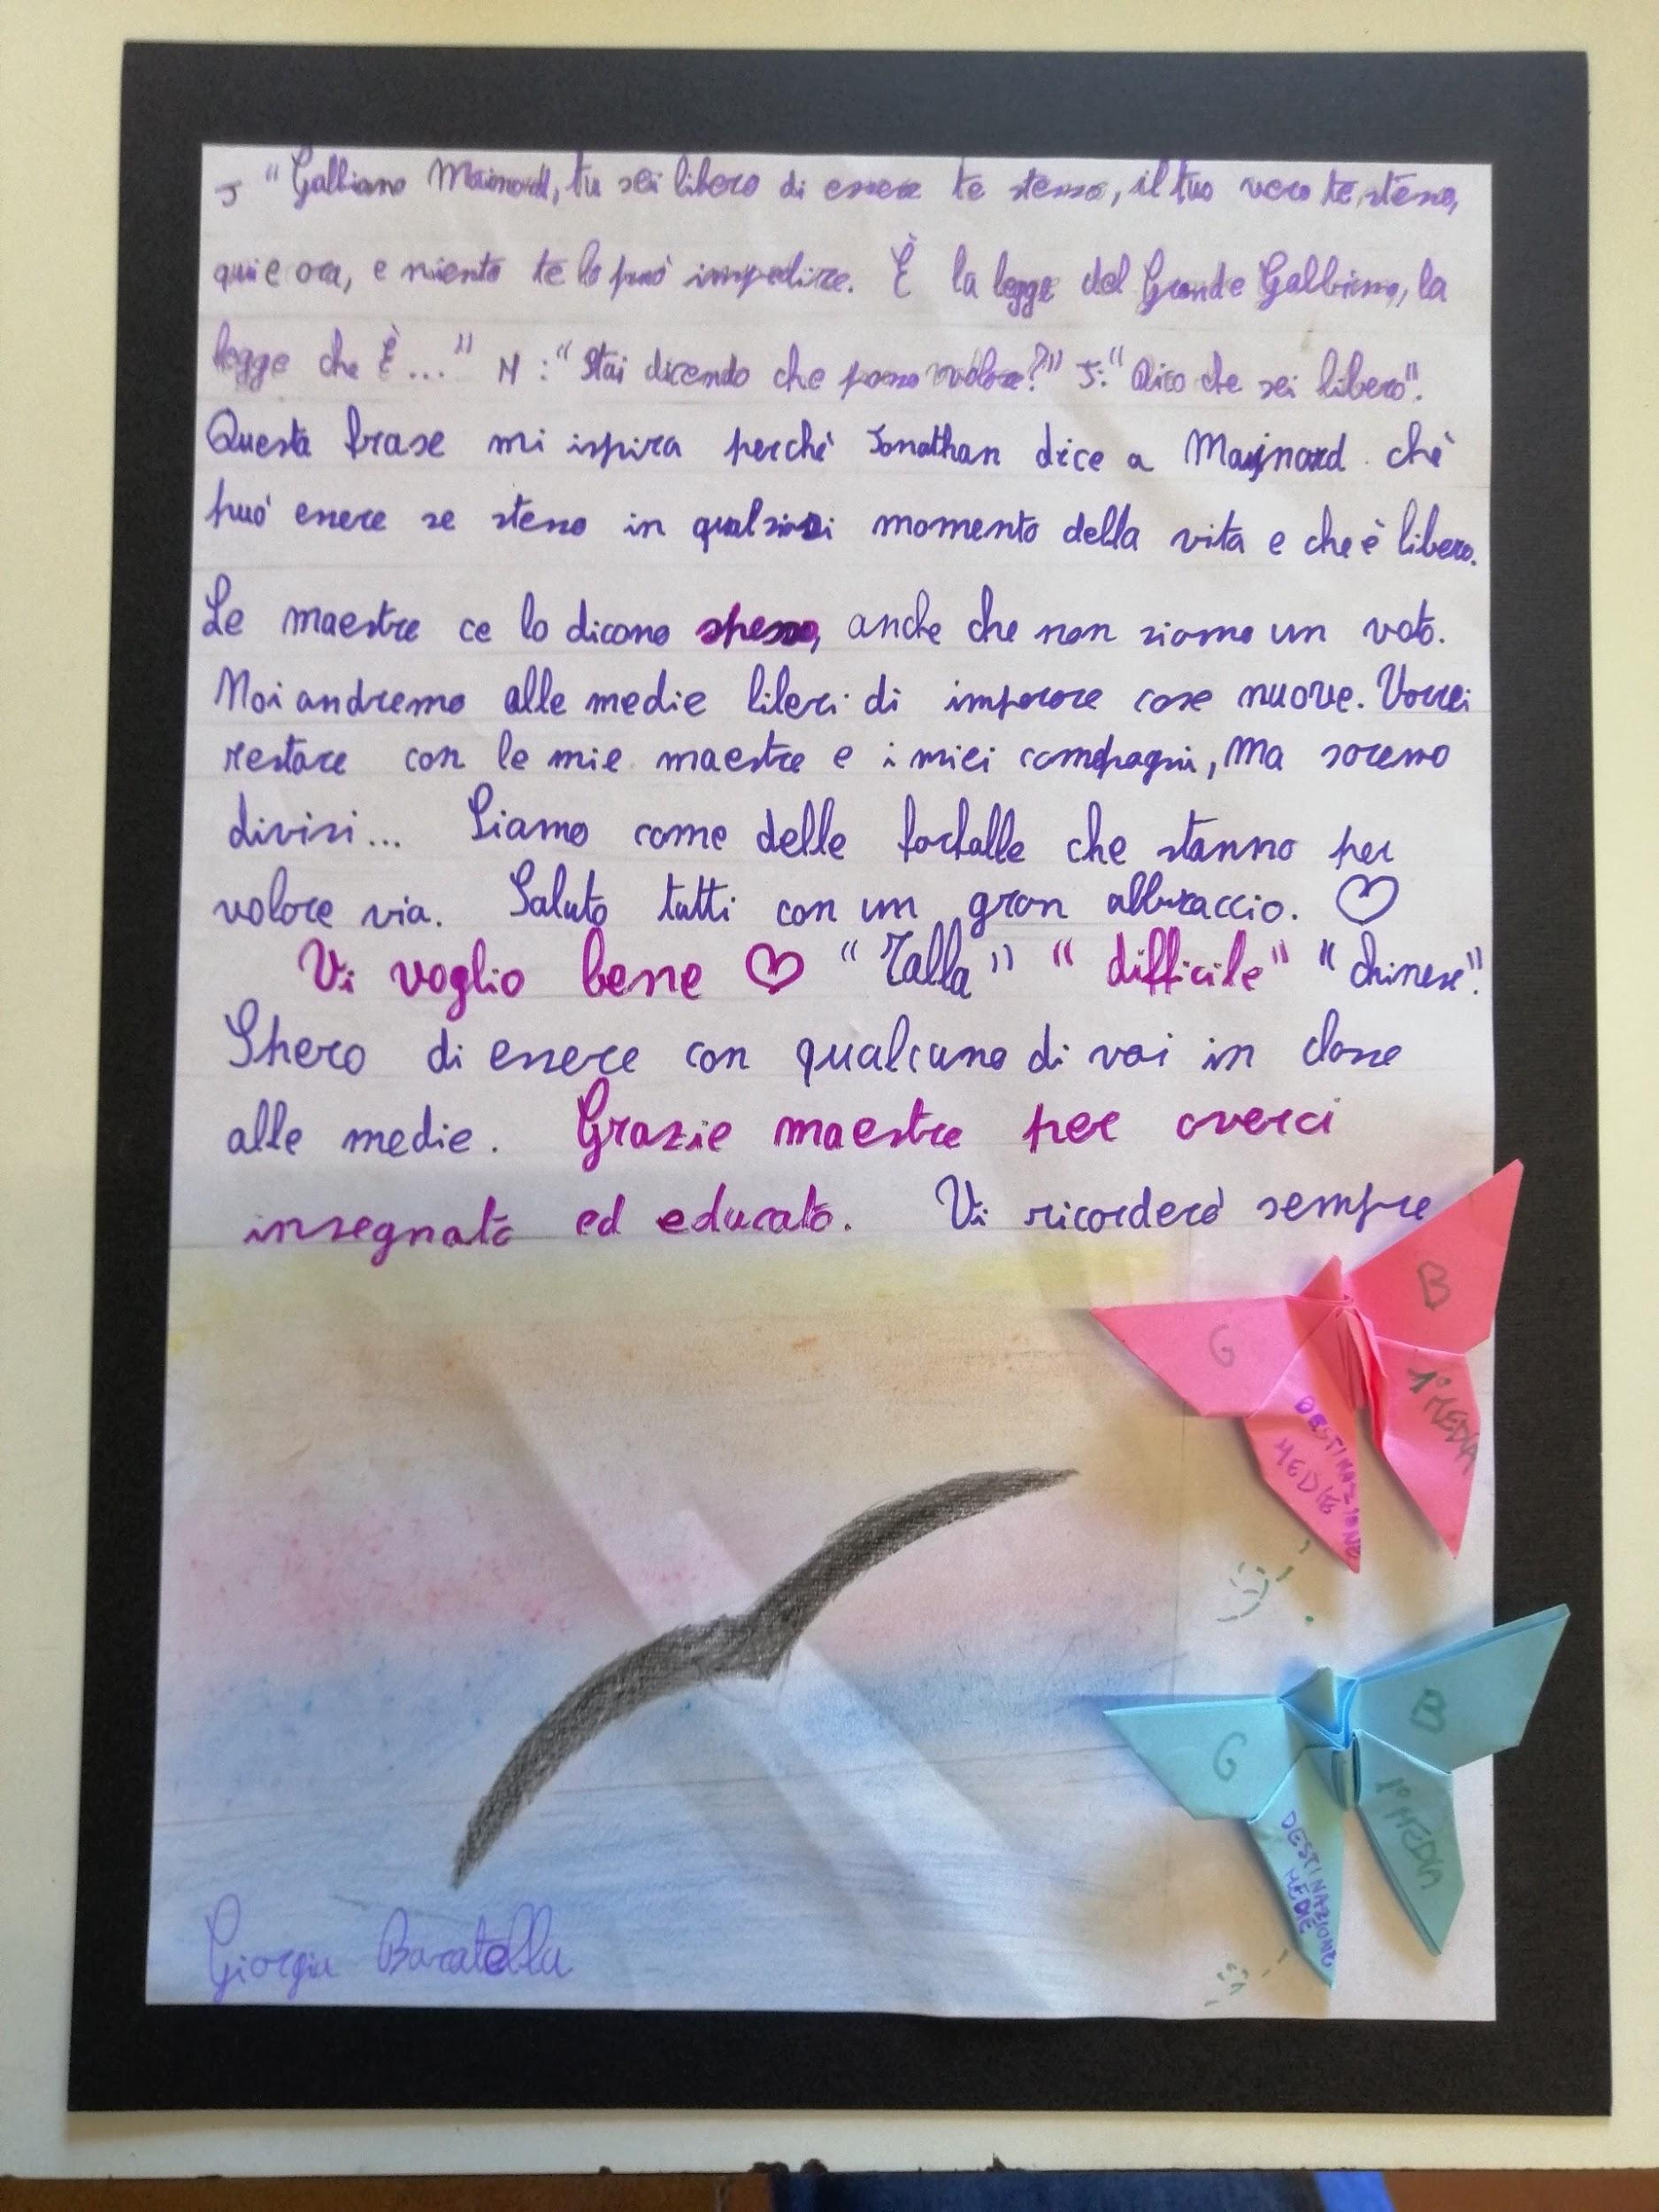 J "Gabbiano Mainard, tu sei libero di essere te stesso, il tuo vero te stesso,
qui e ora, e niente te lo può impedire. È la legge del Grande Gabbiano, la
legge che È..." M: "Stai dicendo che posso volare?" J: "Dico che sei libero".
Questa frase mi ispira perchè Jonathan dice a Maynard che
può essere se stesso in qualsiasi momento della vita e che è libero.
Le maestre ce lo dicono spesso, anche che non siamo un voto.
Noi andremo alle medie liberi di imparare cose nuove. Vorrei
restare con le mie maestre e i miei compagni, ma saremo
divisi... Siamo come delle farfalle che stanno per
volare via. Saluto tutti con un gran abbraccio. ♡
Vi voglio bene ♡ " " "difficile" "chinese".
Spero di essere con qualcuno di voi in classe
alle medie. Grazie maestre per averci
insegnato ed educato. Vi ricorderò sempre
G B
DESTINAZIONE MEDIE
1° MEDIA
G B
DESTINAZIONE MEDIE
1° MEDIA
Giorgia Baratella